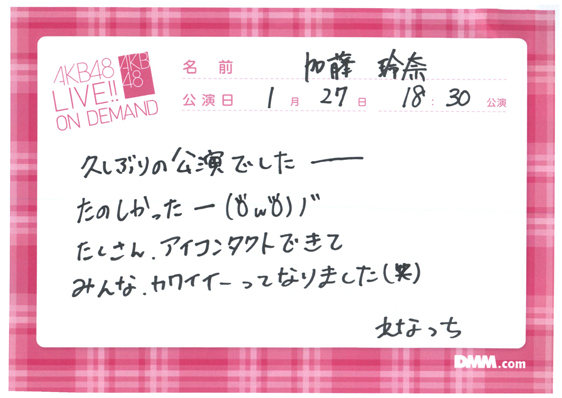 AKB48
LIVE!!
ON DEMAND
AKB
48
名前 加藤 玲奈
公演日 1月27日 18:30公演
久しぶりの公演でしたー
たのしかったー(ŏωŏ)ノ゛
たくさん、アイコンタクトできて
みんな、カワイイーってなりました(笑)
れなっち
DMM.com